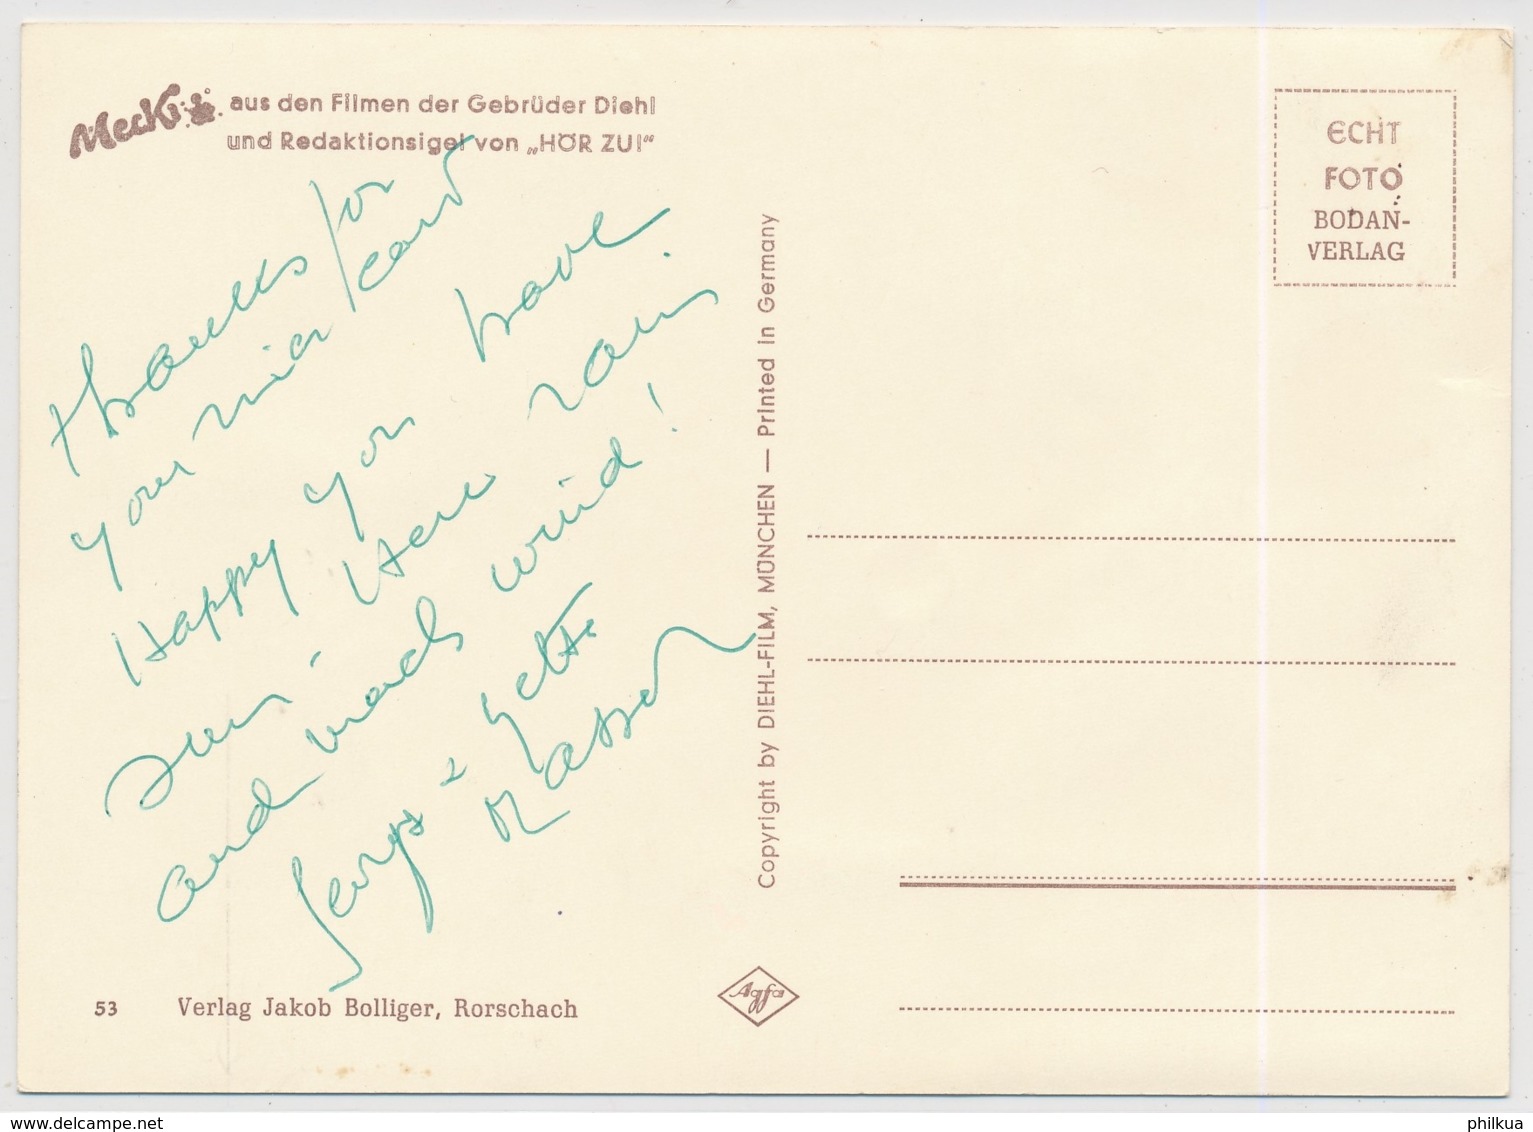 Mecki
aus den Filmen der Gebrüder Diehl
und Redaktionsigel von „HÖR ZU!“
thanks for
your nice card
Happy you have
sun. Here rain
and much wind!
Serge & Yette
Masson
Copyright by DIEHL-FILM, MÜNCHEN — Printed in Germany
ECHT
FOTO
BODAN-
VERLAG
53 Verlag Jakob Bolliger, Rorschach
Agfa
www.delcampe.net
philkua